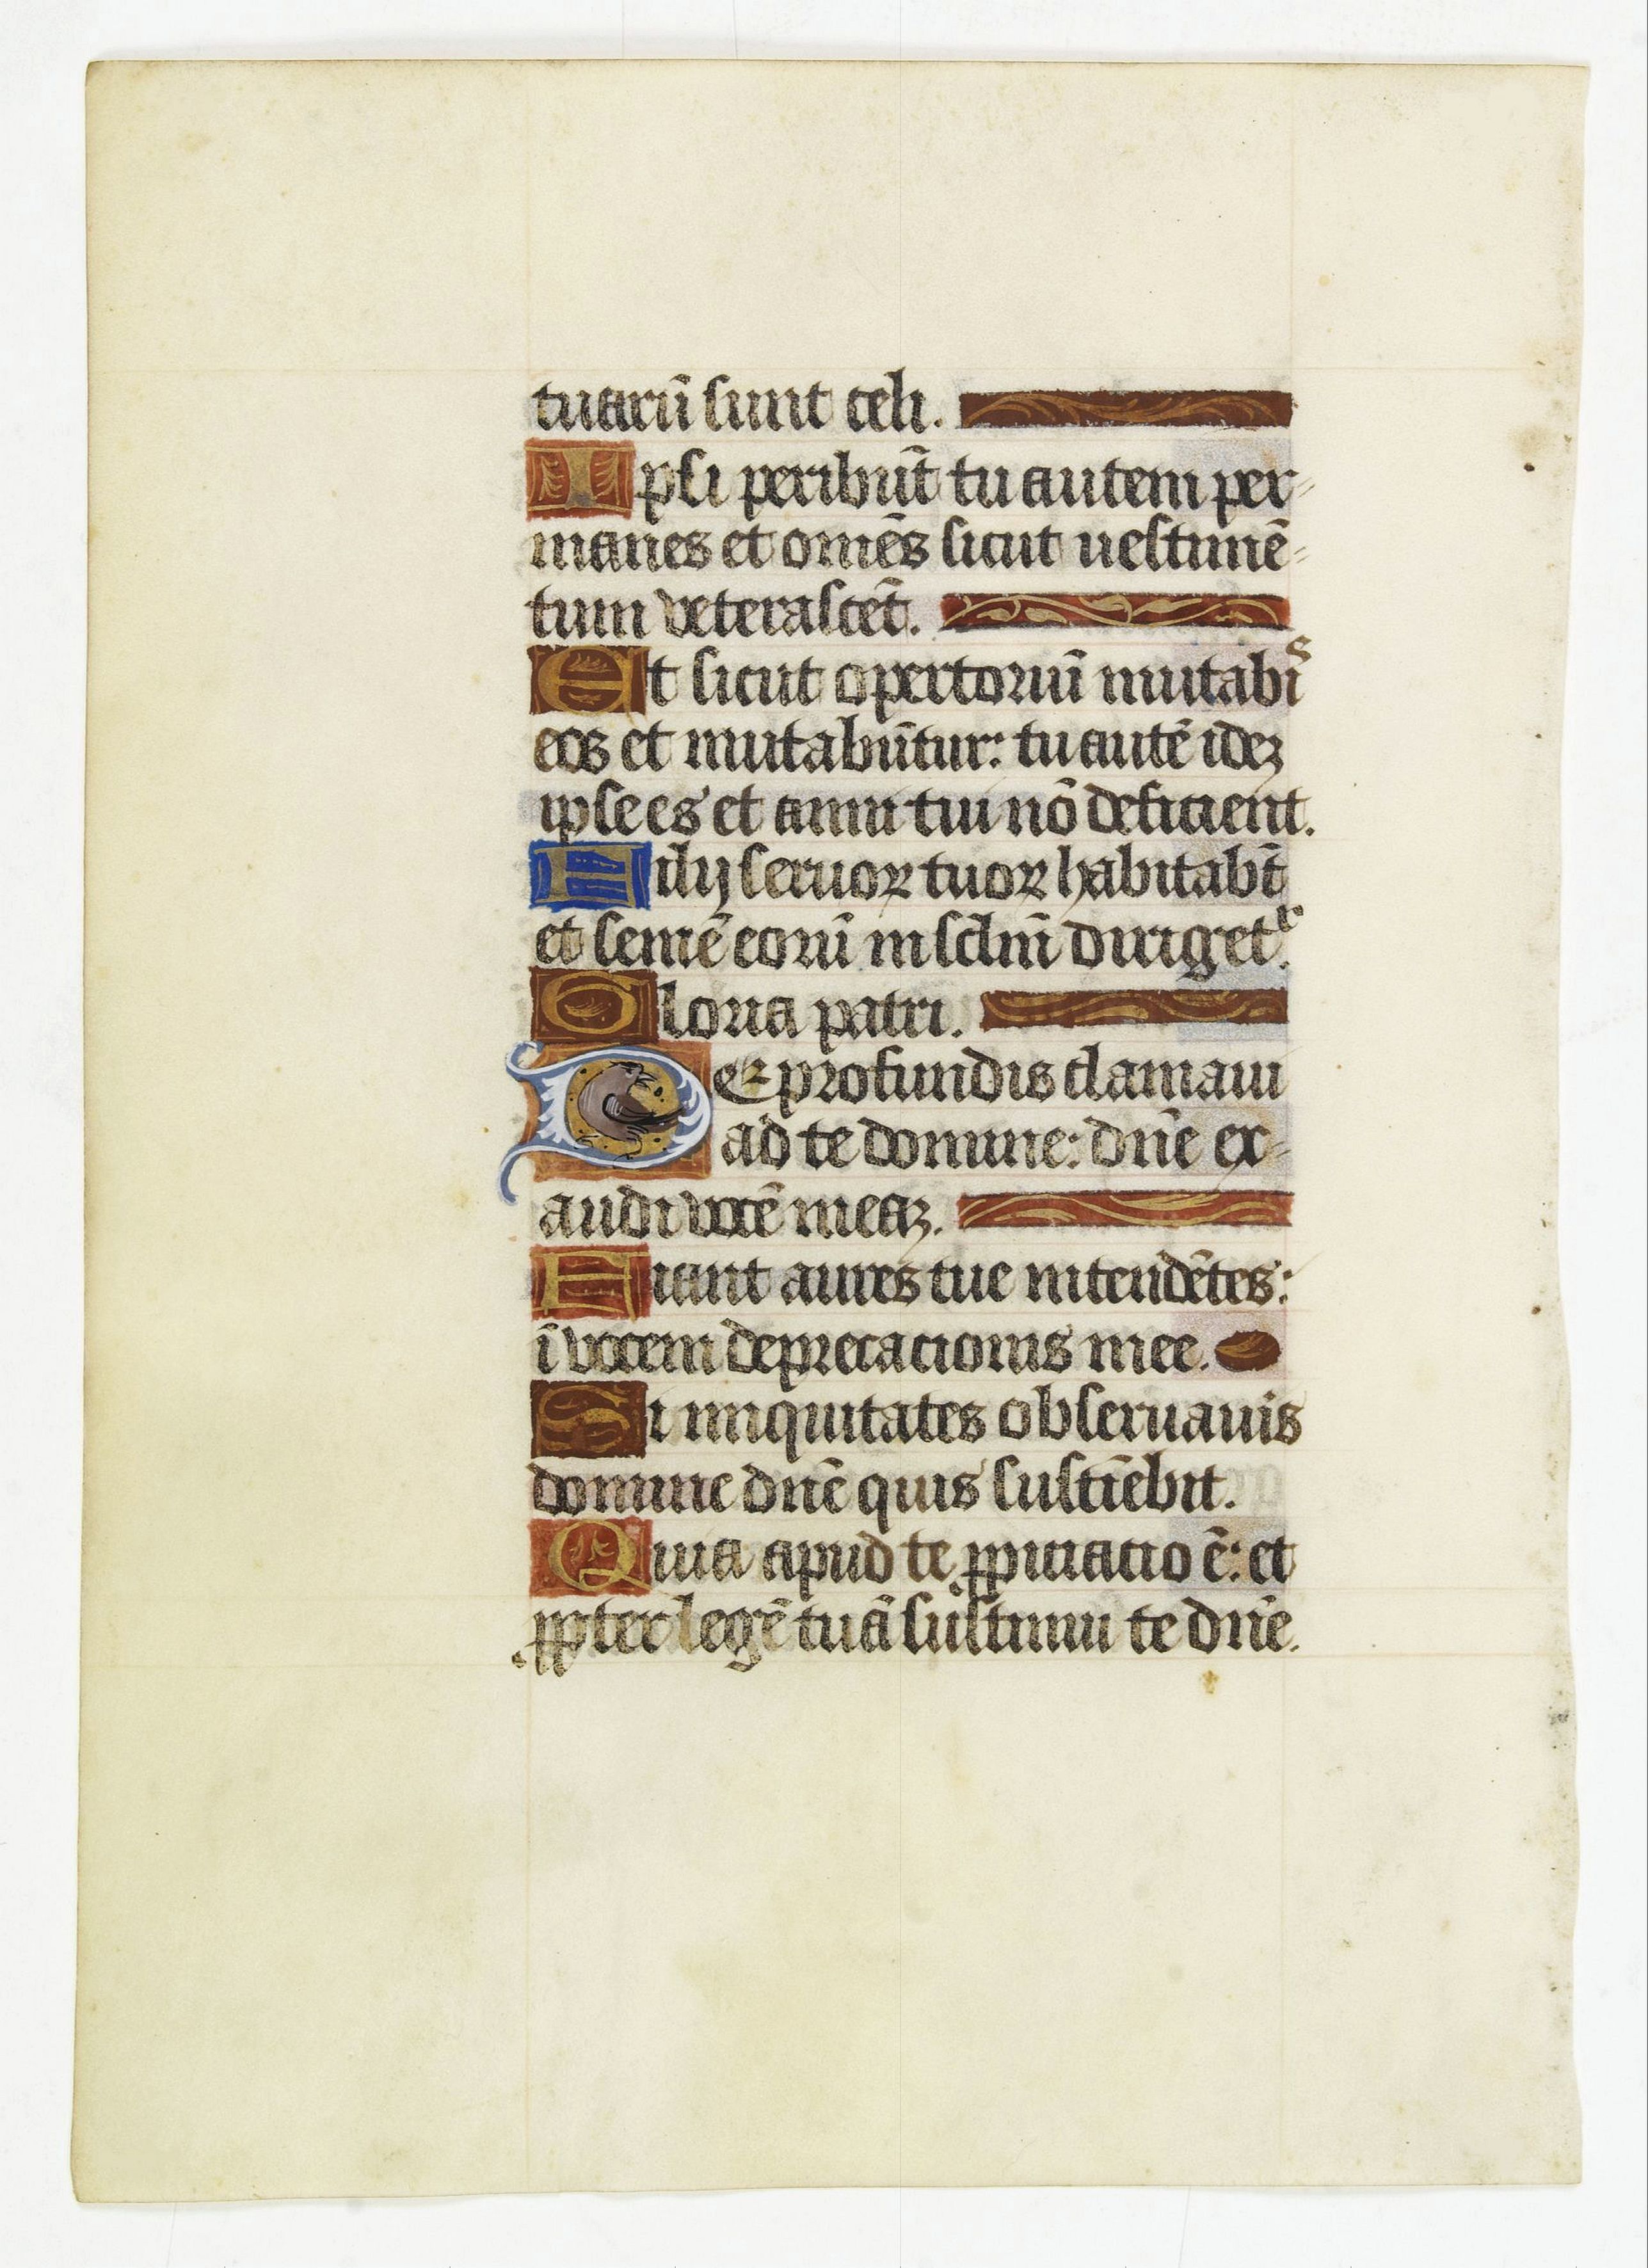 tuarū sunt celi.
Ipsi peribūt tu autem per-
manes et omēs sicut uestimē-
tum veterascēt.
Et sicut opertoriū mutabis
eos et mutabūtur: tu autē idez
ipse es et anni tui nō deficient.
Filij seruoꝝ tuoꝝ habitabūt
et semē eorū in sclm̄ dirigetr.
Gloria patri.
De profundis clamaui
ad te domine: dn̄e ex-
audi vocē meaz.
Fiant aures tue intendētes:
ī vocem deprecacionis mee.
Si iniquitates obseruauis
domine dn̄e quis sustīebit.
Quia apud te ꝓpiciacio ē: et
ꝓpter legē tuā sustinui te dn̄e.